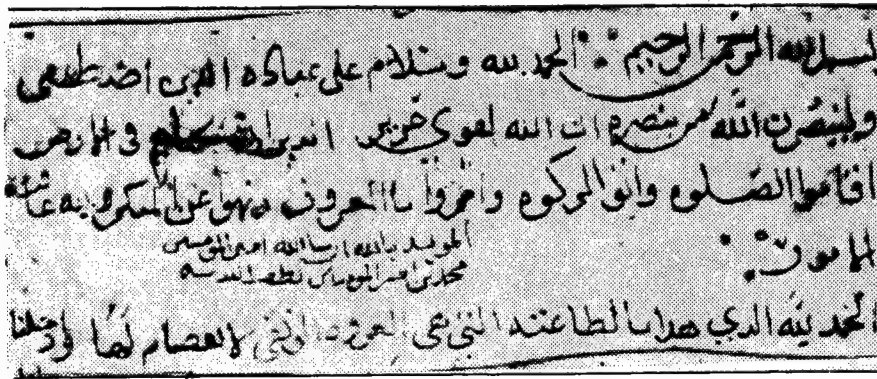 بسم الله الرحمن الرحيم الحمد لله وسلام على عباده الذين اصطفى
ولينصرن الله من ينصره ان الله لقوي عزيز الذين ان مكناهم في الارض
اقاموا الصلوه واتوا الزكوه وامروا بالمعروف ونهوا عن المنكر ولله عاقبة
الامور
المويد بالله ان شا الله امير المومنين
محمد بن امير المومنين لطف الله به
الحمد لله الذي هدانا لطاعته التي هي العروة الوثقى لا انفصام لها وادخلنا